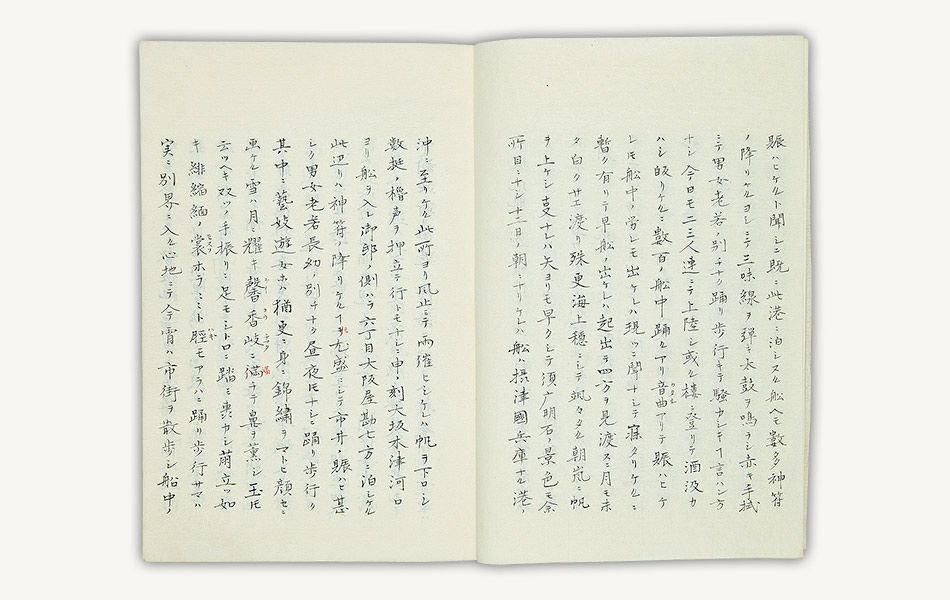 賑ハヒケルト聞シニ既ニ此港ニ泊シスル船ヘモ数多神符
ノ降リケルヨシニテ三味線ヲ弾キ太鼓ヲ鳴ラシ赤キ手拭
ニテ男女老若ノ別チナク踊リ歩行キテ騒カシキヿ言ハン方
ナシ今日モ二三人連ニテ上陸シ或ル楼ニ登リテ酒汲カ
ハシ皈リケルニ数百ノ船中踊ルアリ音曲アリテ賑ハヒケ
レモ船中ノ労レモ出ケレハ現ツニ聞ナシテ寐タリケルニ
暫ク有リテ早船ノ出ケレハ起出テ四方ヲ見渡スニ月モ未
タ白クサエ渡リ殊更海上穏ニシテ颯々タル朝嵐ニ帆
ヲ上ケシ叓ナレハ矢ヨリモ早クシテ須广明石ノ景色モ余
所目ニナシ十二日ノ朝ニナリケレハ船ハ摂津國兵庫ナル港ノ
沖ニ至リケル此所ヨリ風止ミテ雨催ヒシケレハ帆ヲ下ロシ
数挺ノ櫓声ヲ押立テ行トモナシニ申ノ刻大坂木津河口
ヨリ船ヲ入レ御邸ノ側ハラ六丁目大阪屋勘七方ニ泊シケル
此辺リハ神符ノ降リケルヿ尤盛ニシテ市井ノ賑ハヒ甚
シク男女老若長幼ノ別チナク昼夜トモナシニ踊リ歩行ク
其中ニ藝妓遊女ホハ猶更ニ身ニ錦繍ヲマトヒ顔セニ
画ケル雪ハ月ニ耀キ馨香岐ニ満チテ鼻ヲ薫シ玉トモ
云ツヘキ双ツノ手振リニ足モシトロニ踏ミ轟カシ萠立ツ如
キ緋縮緬ノ裳ホラミミト脛モアラハニ踊リ歩行サマハ
実ニ別界ニ入ル心地ニテ今霄ハ市街ヲ散歩シ船中ノ